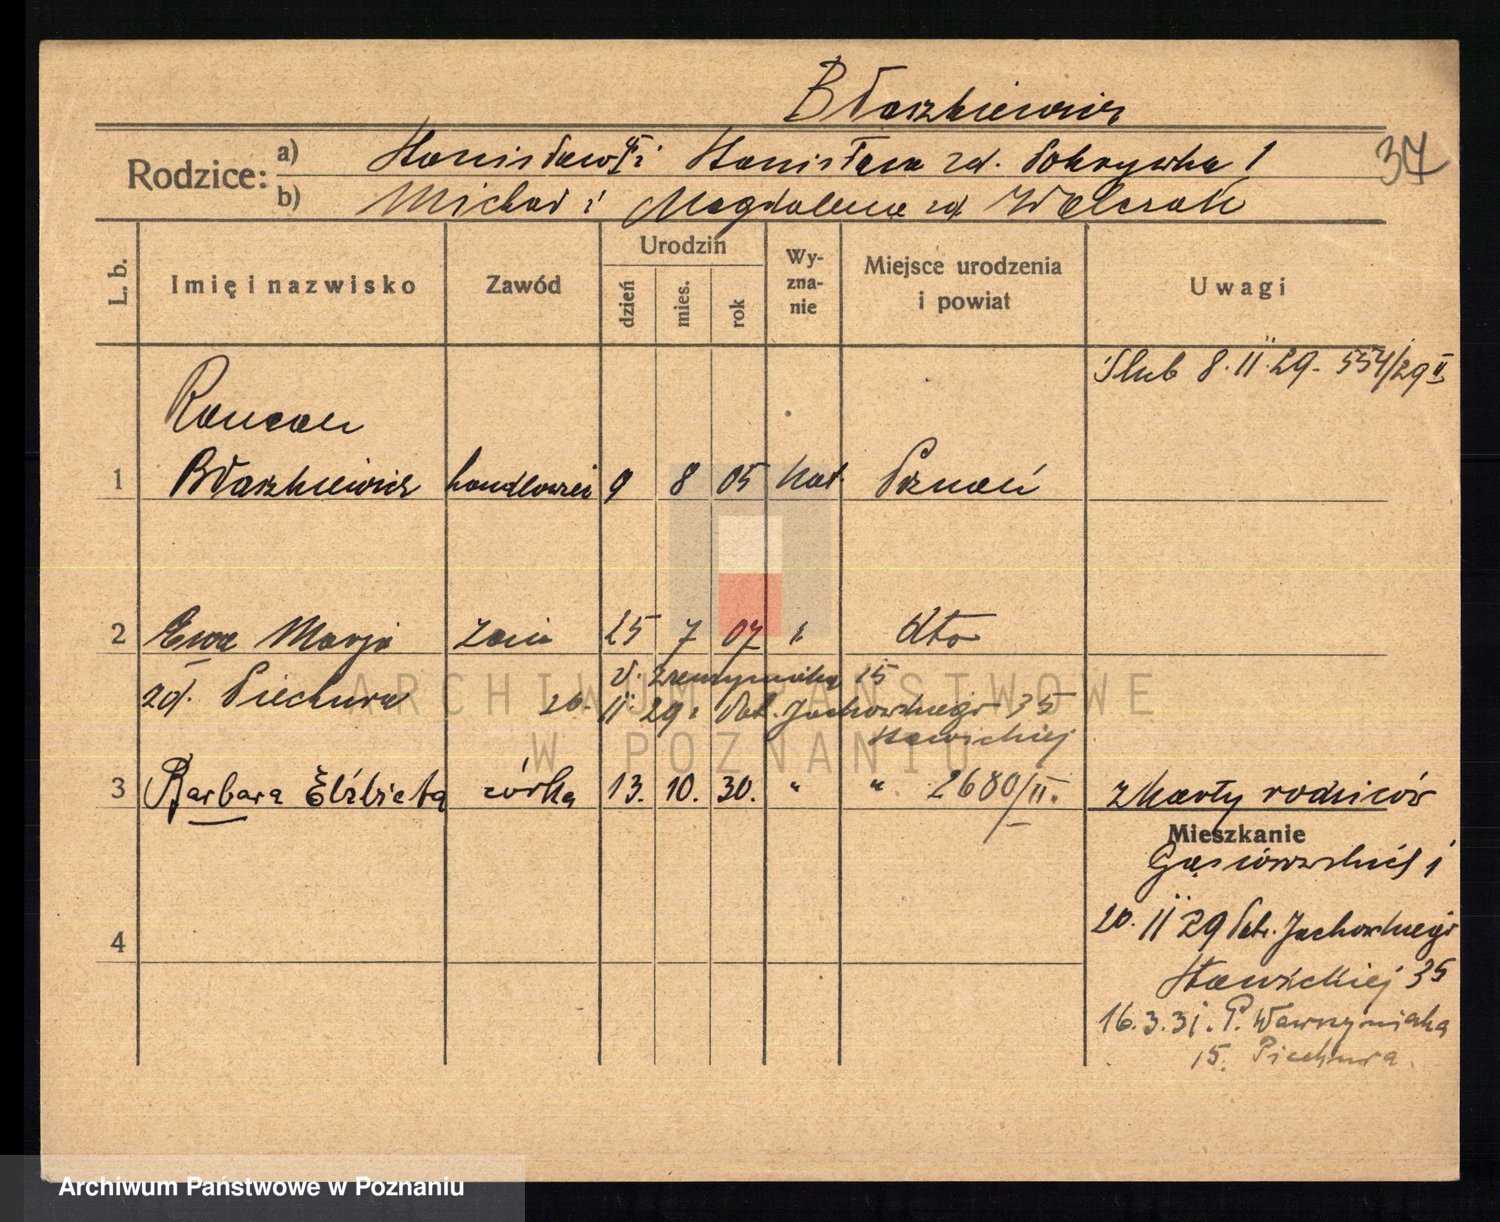 Błaszkiewicz
Rodzice:
a) Stanisław i Stanisława zd. Pokrywka 1
37
b) Michał i Magdalena zd Walczak
L. b.
Imię i nazwisko
Zawód
Urodzin
dzień
mies.
rok
Wy-
zna-
nie
Miejsce urodzenia
i powiat
Uwagi
Ślub 8.II.29. 554/29 II
Roman
1 Błaszkiewicz handlowiec 9 8 05 kat. Poznań
2 Ewa Marja żona 25 7 07 " dto
zd. Piechura
15
26. II 29 Jachowskiego 35
Sławickiej
3 Barbara Elżbieta córka 13. 10. 30. " " 2680/II. z karty rodziców
Mieszkanie
Gąsiorowskich 1
20. II 29 Jachowskiego
Sławickiej 35
4
16.3.31. P. Wawrzyniaka
15. Piechura.
ARCHIWUM PAŃSTWOWE
W POZNANIU
Archiwum Państwowe w Poznaniu